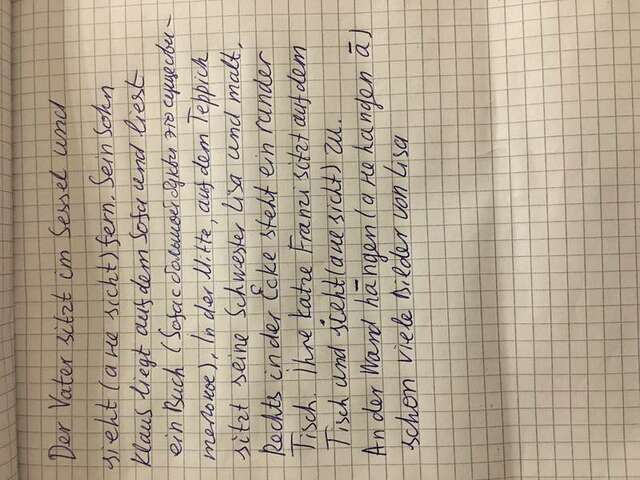 Der Vater sitzt im Sessel und
sieht (а не sicht) fern. Sein Sohn
Klaus liegt auf dem Sofa und liest
ein Buch (Sofa с большой буквы это существи-
тельное), In der Mitte, auf dem Teppich
sitzt seine Schwester Lisa und malt.
Rechts in der Ecke steht ein runder
Tisch. Ihre Katze Franzi sitzt auf dem
Tisch und sieht (а не sicht) zu.
An der Wand hāngen (а не hangen ā)
schon viele Bilder von Lisa